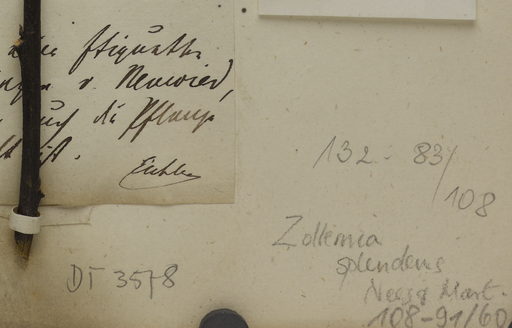 Etiquette
v. Neuwied,
auch die Pflanze
ist.
Eichler
132 - 83/
108
Zollernia
splendens
Nees & Mart.
108-91/60
DT 3578